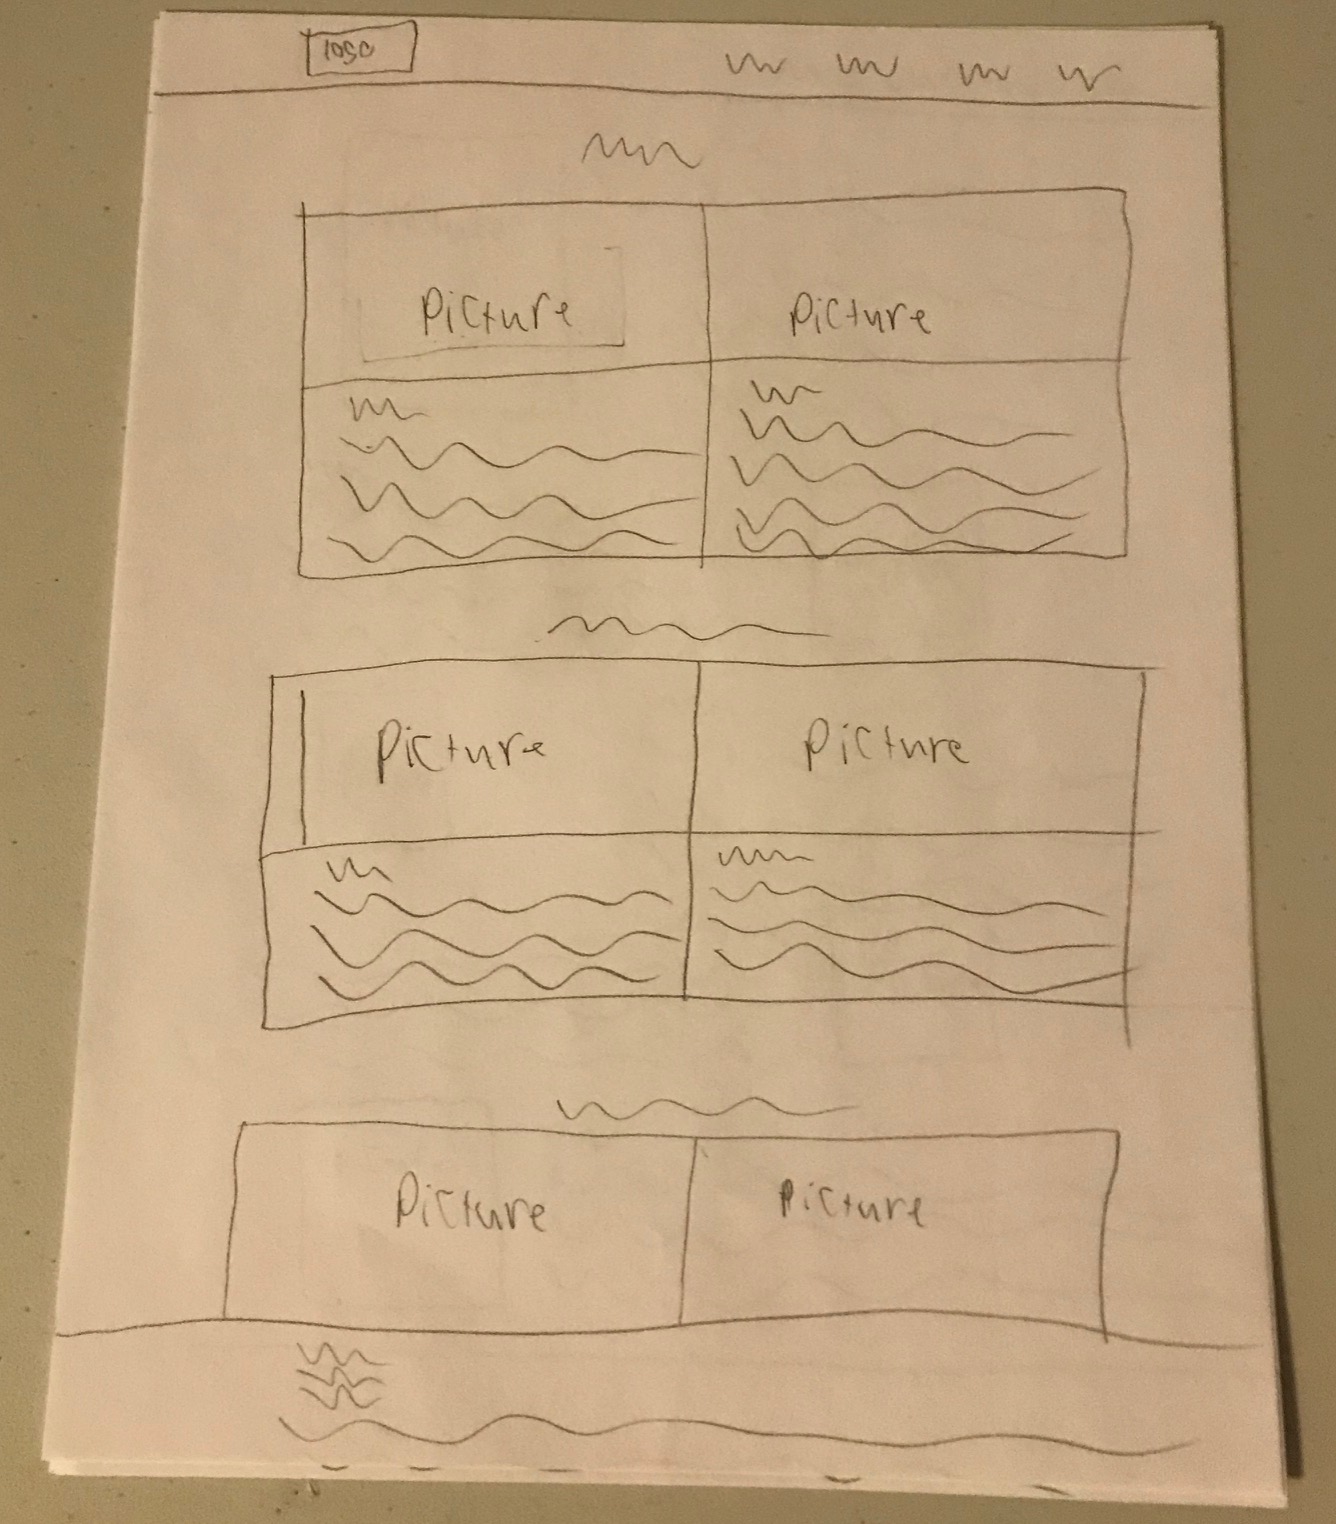 logo
Picture Picture
Picture Picture
Picture Picture